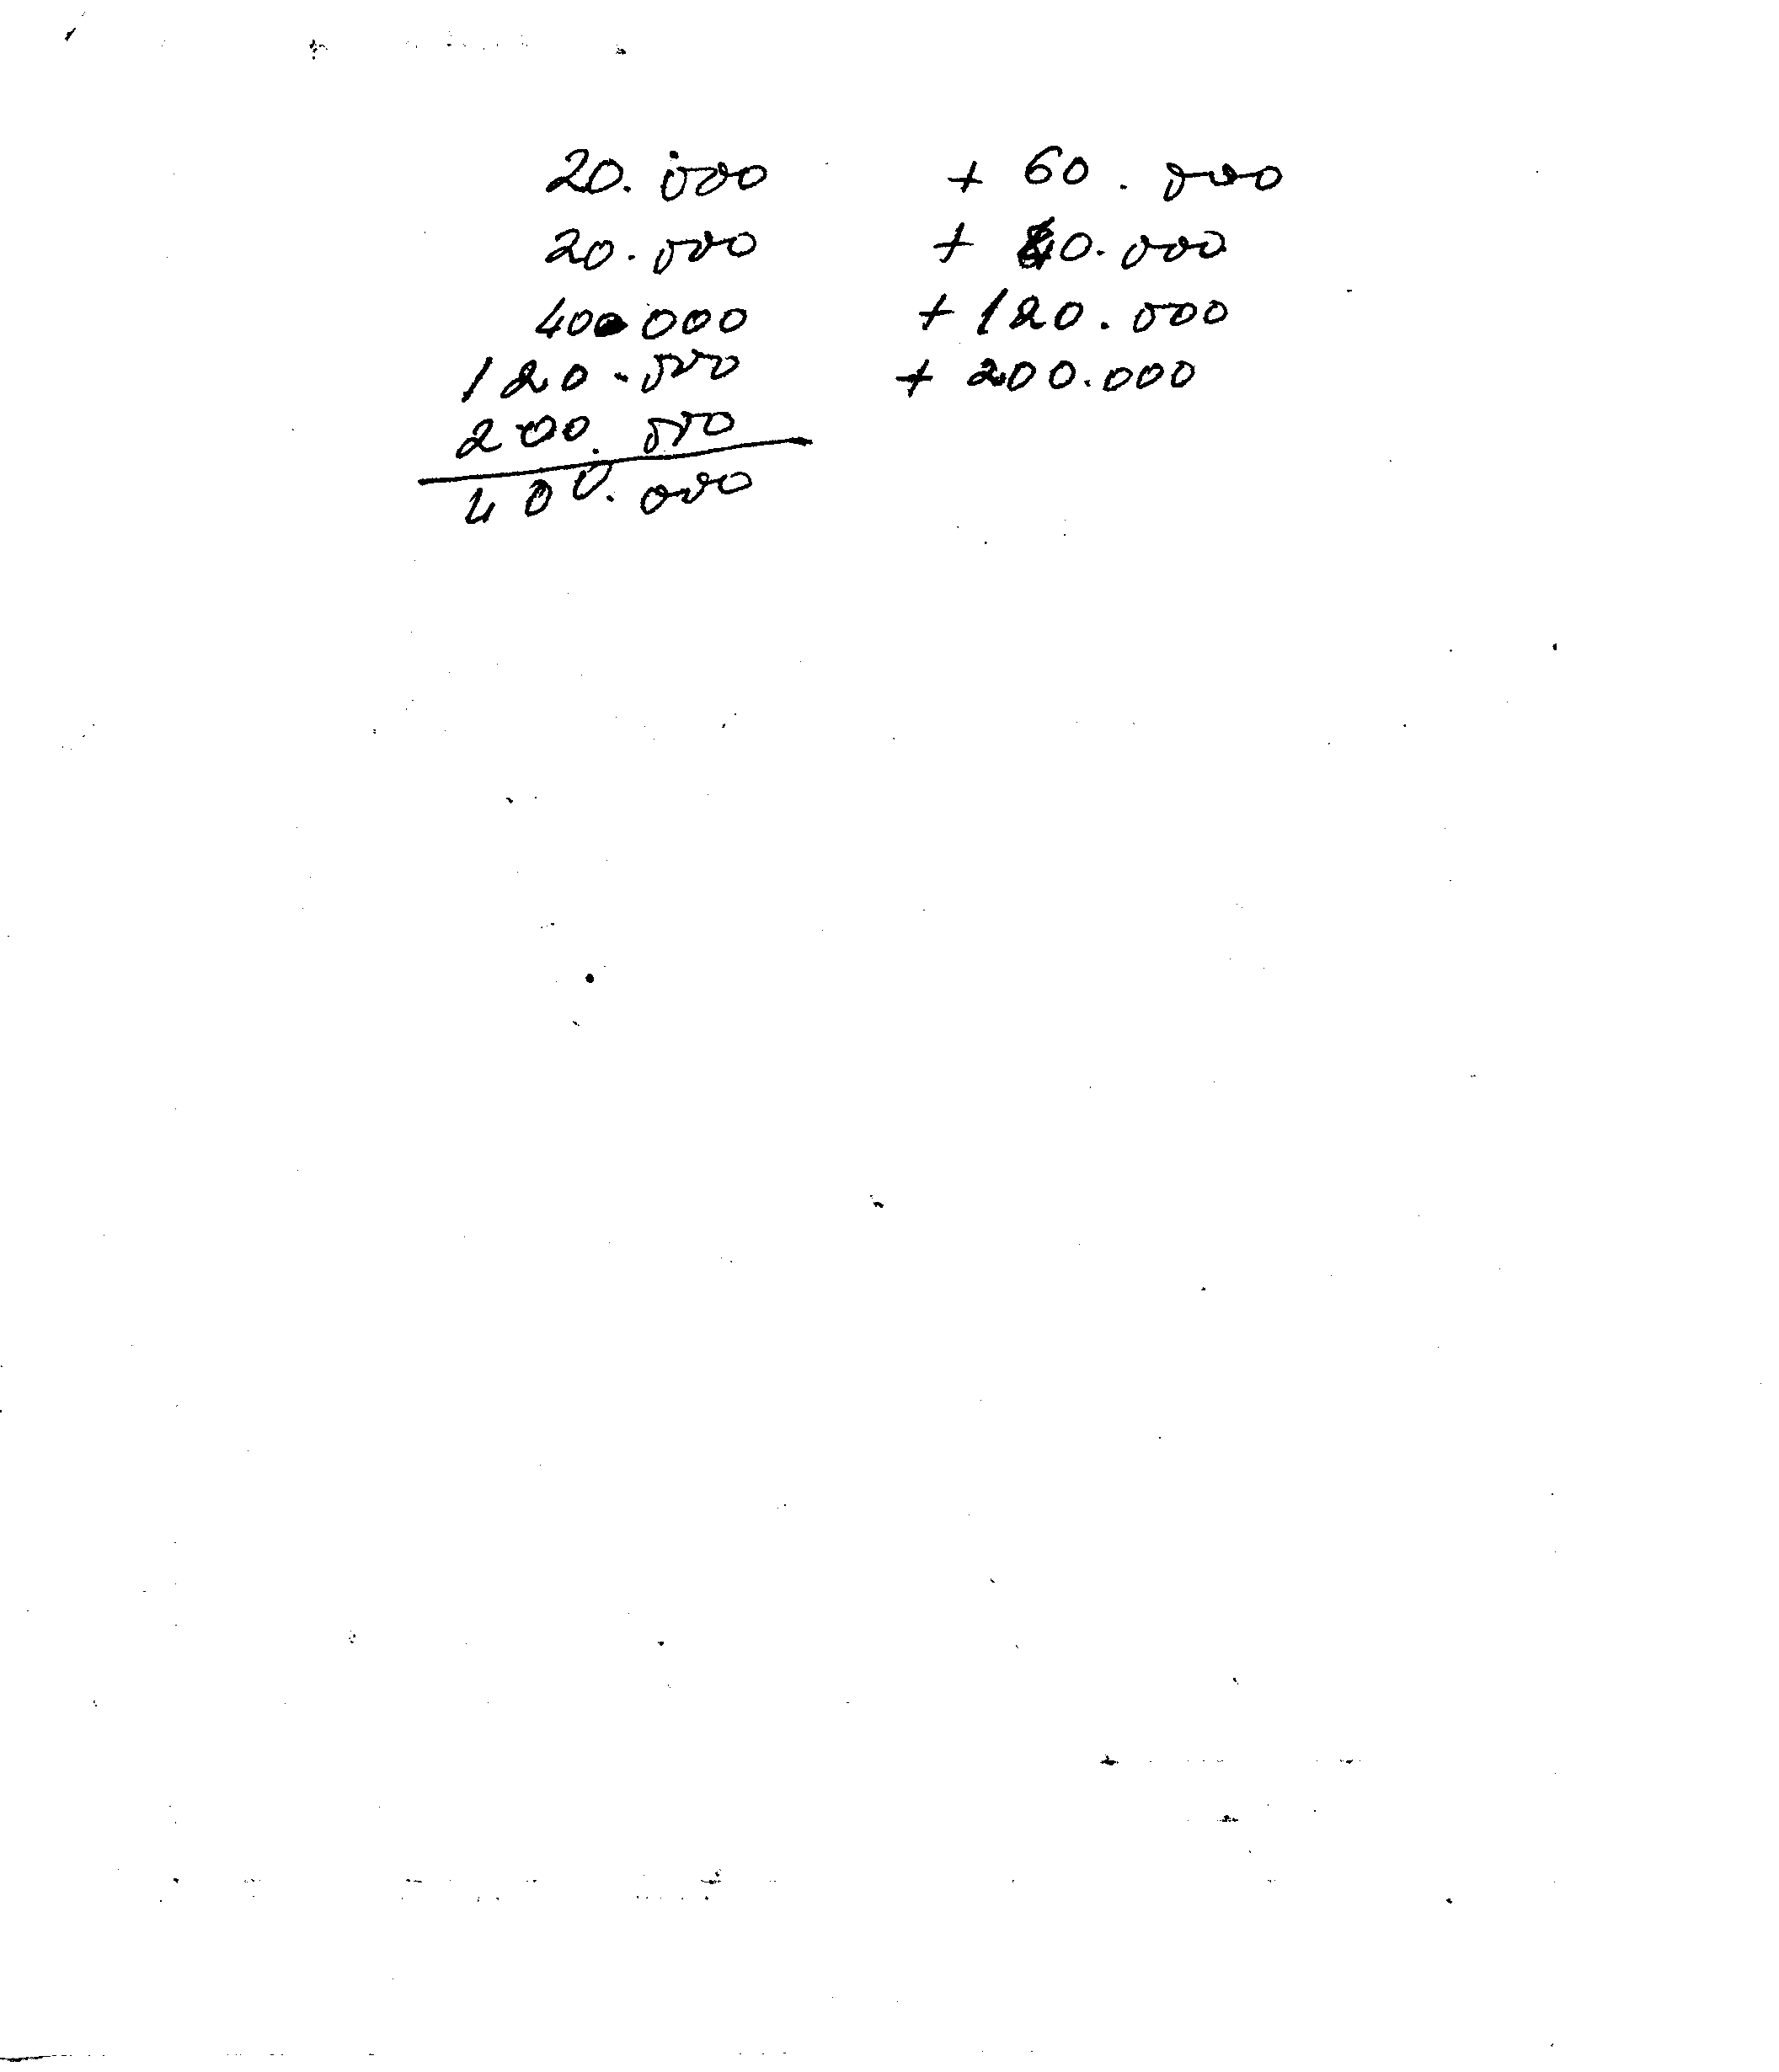 20.000 + 60.000
20.000 + 40.000
40.000 + 120.000
120.000 + 200.000
200.000
400.000